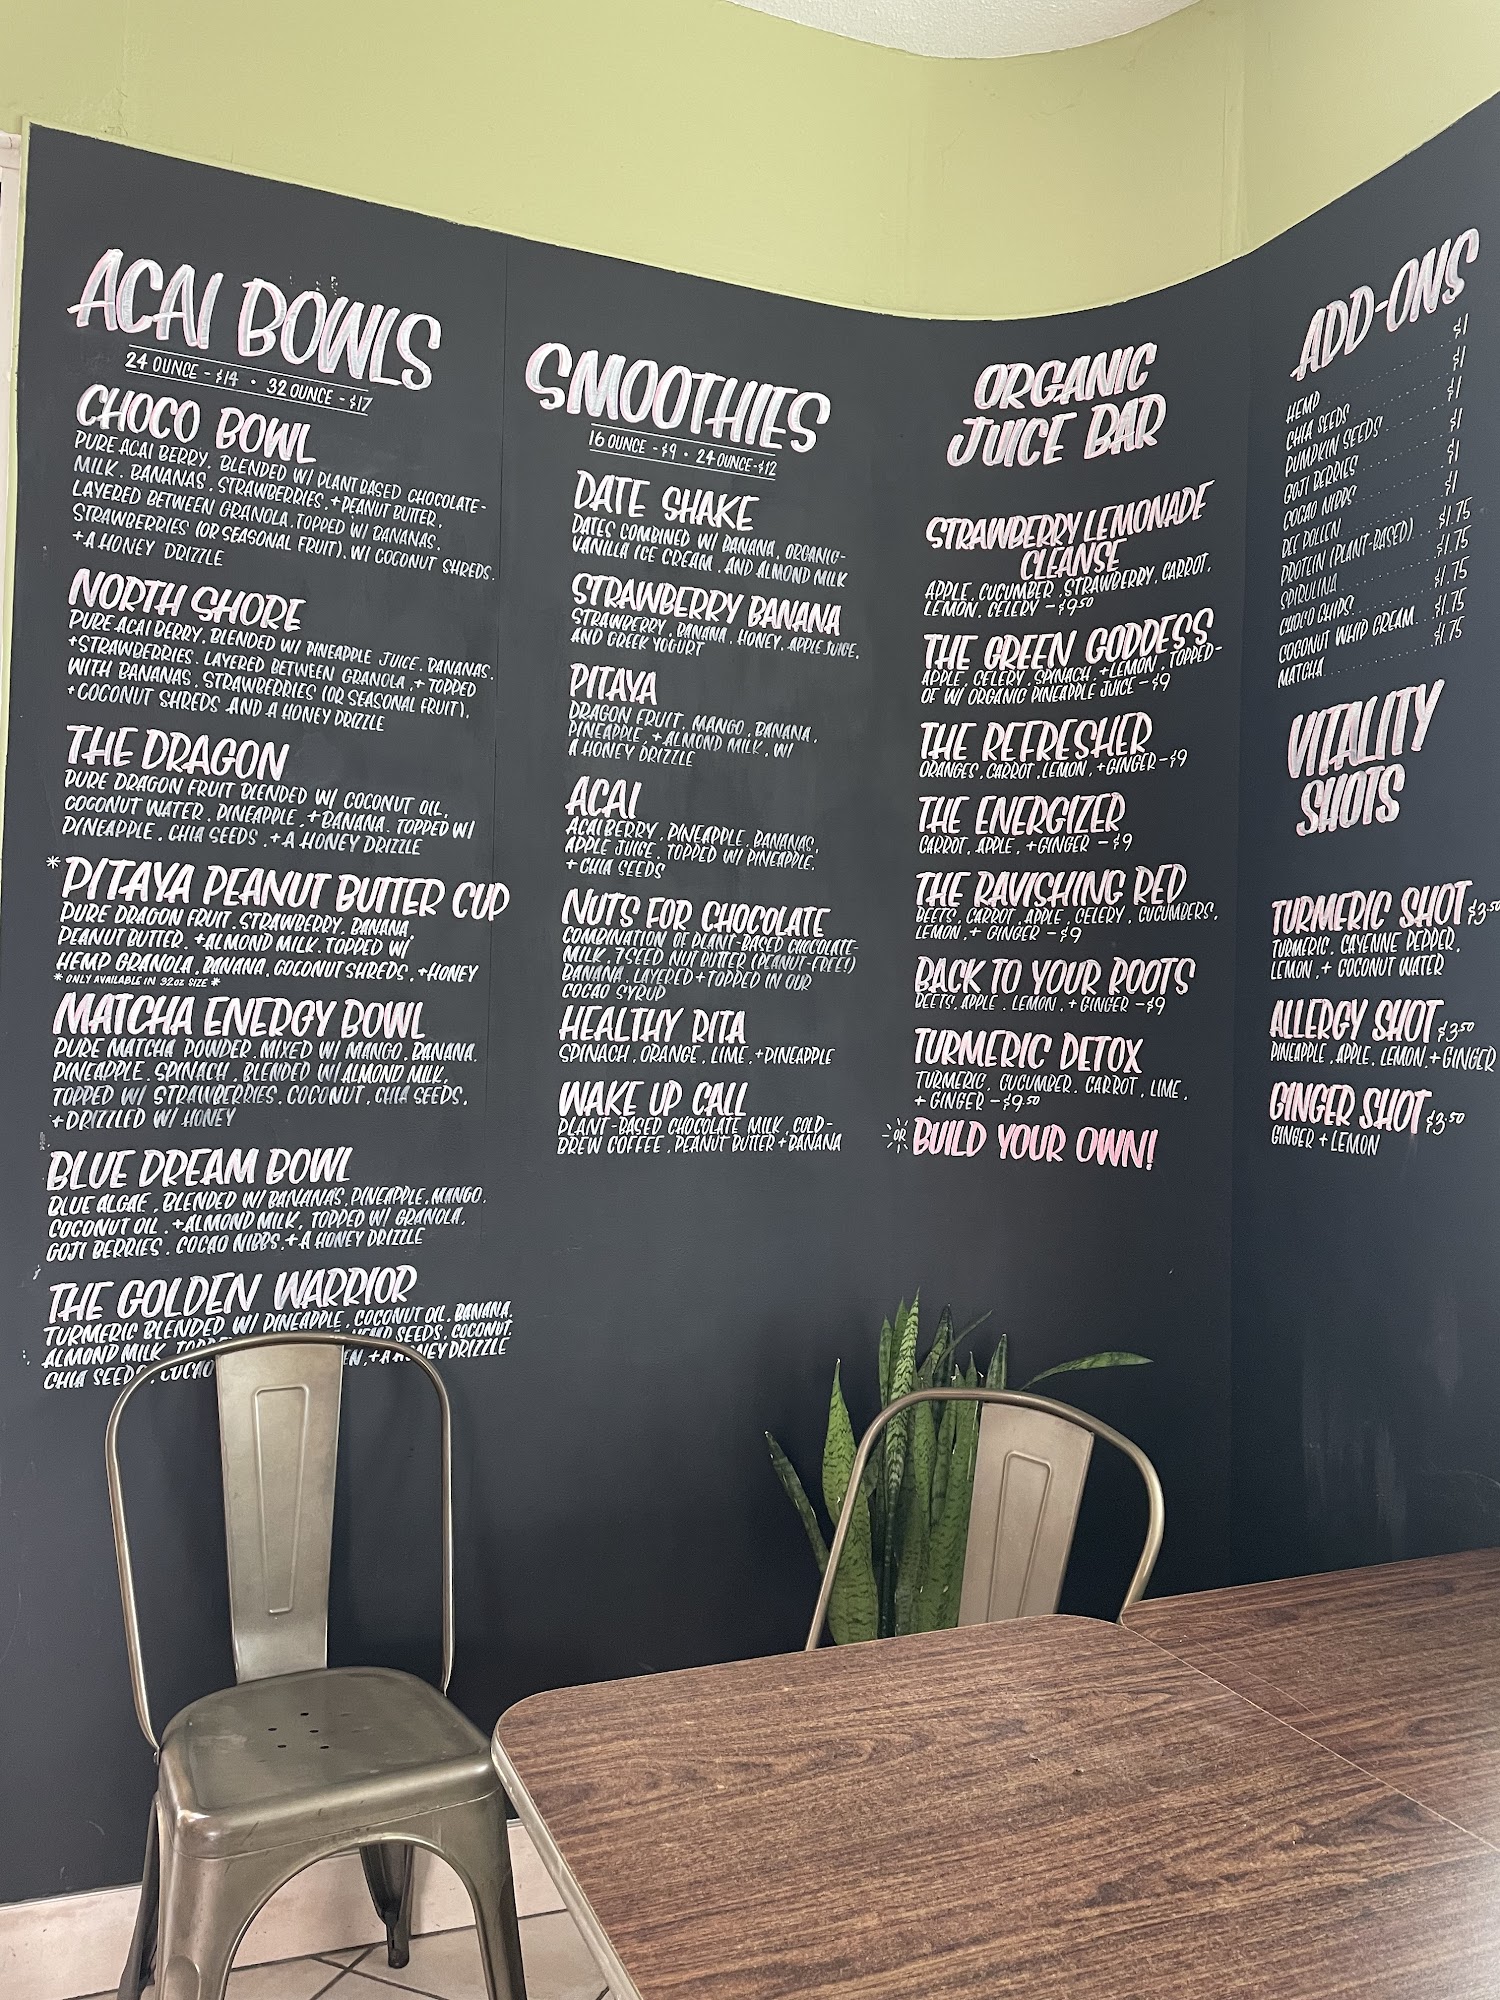 ACAI BOWLS
24 OUNCE - $14 • 32 OUNCE - $17
CHOCO BOWL
PURE ACAI BERRY, BLENDED W/ PLANT BASED CHOCOLATE-
MILK, BANANAS, STRAWBERRIES, + PEANUT BUTTER,
LAYERED BETWEEN GRANOLA, TOPPED W/ BANANAS,
STRAWBERRIES (OR SEASONAL FRUIT), W/ COCONUT SHREDS,
+ A HONEY DRIZZLE
NORTH SHORE
PURE ACAI BERRY, BLENDED W/ PINEAPPLE JUICE, BANANAS,
+ STRAWBERRIES. LAYERED BETWEEN GRANOLA, + TOPPED
WITH BANANAS, STRAWBERRIES (OR SEASONAL FRUIT),
+ COCONUT SHREDS AND A HONEY DRIZZLE
THE DRAGON
PURE DRAGON FRUIT BLENDED W/ COCONUT OIL,
COCONUT WATER, PINEAPPLE, + BANANA. TOPPED W/
PINEAPPLE, CHIA SEEDS, + A HONEY DRIZZLE
* PITAYA PEANUT BUTTER CUP
PURE DRAGON FRUIT, STRAWBERRY, BANANA,
PEANUT BUTTER, + ALMOND MILK. TOPPED W/
HEMP GRANOLA, BANANA, COCONUT SHREDS, + HONEY
* ONLY AVAILABLE IN 32oz SIZE *
MATCHA ENERGY BOWL
PURE MATCHA POWDER MIXED W/ MANGO, BANANA,
PINEAPPLE, SPINACH, BLENDED W/ ALMOND MILK,
TOPPED W/ STRAWBERRIES, COCONUT, CHIA SEEDS,
+ DRIZZLED W/ HONEY
BLUE DREAM BOWL
BLUE ALGAE, BLENDED W/ BANANAS, PINEAPPLE, MANGO,
COCONUT OIL, + ALMOND MILK, TOPPED W/ GRANOLA,
GOJI BERRIES, COCAO NIBBS, + A HONEY DRIZZLE
THE GOLDEN WARRIOR
TURMERIC BLENDED W/ PINEAPPLE, COCONUT OIL, BANANA,
ALMOND MILK, HEMP SEEDS, COCONUT,
CHIA SEEDS, COCAO + A HONEY DRIZZLE
SMOOTHIES
16 OUNCE - $9 • 24 OUNCE - $12
DATE SHAKE
DATES COMBINED W/ BANANA, ORGANIC-
VANILLA ICE CREAM, AND ALMOND MILK
STRAWBERRY BANANA
STRAWBERRY, BANANA, HONEY, APPLE JUICE,
AND GREEK YOGURT
PITAYA
DRAGON FRUIT, MANGO, BANANA,
PINEAPPLE, + ALMOND MILK, W/
A HONEY DRIZZLE
ACAI
ACAI BERRY, PINEAPPLE, BANANAS,
APPLE JUICE, TOPPED W/ PINEAPPLE,
+ CHIA SEEDS
NUTS FOR CHOCOLATE
COMBINATION OF PLANT-BASED CHOCOLATE-
MILK, 7 SEED NUT BUTTER (PEANUT-FREE!)
BANANA, LAYERED + TOPPED IN OUR
COCAO SYRUP
HEALTHY RITA
SPINACH, ORANGE, LIME, + PINEAPPLE
WAKE UP CALL
PLANT-BASED CHOCOLATE MILK, COLD-
BREW COFFEE, PEANUT BUTTER + BANANA
ORGANIC
JUICE BAR
STRAWBERRY LEMONADE
CLEANSE
APPLE, CUCUMBER, STRAWBERRY, CARROT,
LEMON, CELERY - $9.50
THE GREEN GODDESS
APPLE, CELERY, SPINACH, + LEMON, TOPPED-
OF W/ ORGANIC PINEAPPLE JUICE - $9
THE REFRESHER
ORANGES, CARROT, LEMON, + GINGER - $9
THE ENERGIZER
CARROT, APPLE, + GINGER - $9
THE RAVISHING RED
BEETS, CARROT, APPLE, CELERY, CUCUMBERS,
LEMON, + GINGER - $9
BACK TO YOUR ROOTS
BEETS, APPLE, LEMON, + GINGER - $9
TURMERIC DETOX
TURMERIC, CUCUMBER, CARROT, LIME,
+ GINGER - $9.50
OR BUILD YOUR OWN!
ADD-ONS
HEMP $1
CHIA SEEDS $1
PUMPKIN SEEDS $1
GOJI BERRIES $1
COCAO NIBBS $1
BEE POLLEN $1
PROTEIN (PLANT-BASED) $1.75
SPIRULINA $1.75
CHOCO CHIPS $1.75
COCONUT WHIP CREAM $1.75
MATCHA $1.75
VITALITY
SHOTS
TURMERIC SHOT $3.50
TURMERIC, CAYENNE PEPPER,
LEMON, + COCONUT WATER
ALLERGY SHOT $3.50
PINEAPPLE, APPLE, LEMON, + GINGER
GINGER SHOT $3.50
GINGER + LEMON